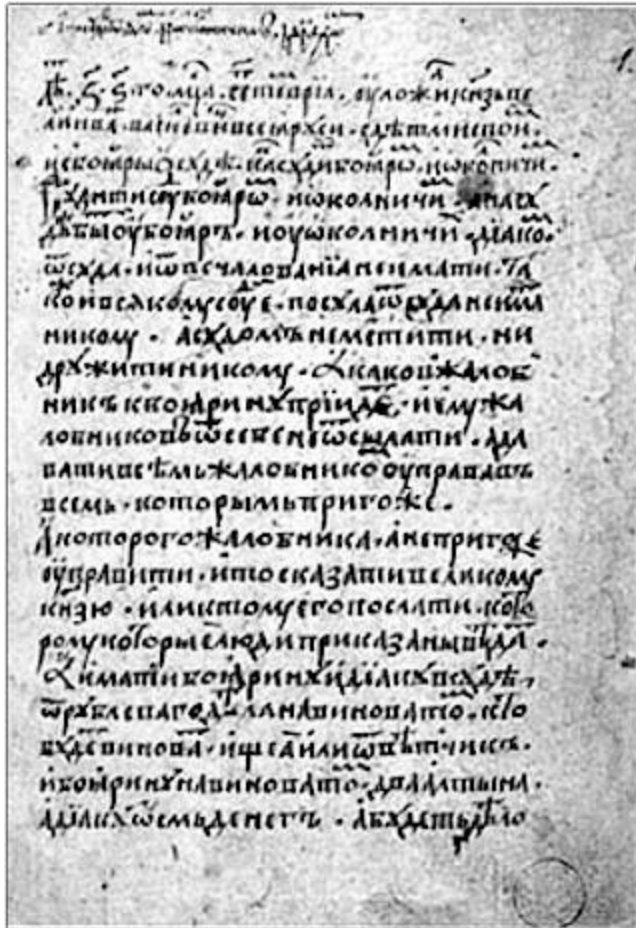 лѣ҃ ҂з҃ ѕ҃ го. мц҃а септевріа. оуложи кнѧзь ве
ликіи иванъ василіевич всеа рꙋси с дѣтми свои
и с боꙗры ѡ сꙋдѣ. ка сꙋди боꙗрѡ и ѡколничи.
сꙋдити сꙋ боꙗрѡ и ѡколничи. а на сꙋ
дѣ бы оу боꙗръ. и оу ѡколничи. діако
ѿ сꙋда. и ѿ печалованіа не имати. та
ко и всякомꙋ сꙋе. посꙋла ѿ сꙋда не има
никомꙋ. а сꙋдомъ не мстити. ни
дрꙋжити никомꙋ. А каков жалоб
никъ к боꙗринꙋ пріиде, и емꙋ жа
лобниковъ ѿ себе не ѿсылати. а да
вати всѣмь жалобнико оуправа въ
всемь. которымь пригоже.
А которого жалобника. а не пригоже
оуправити. и то сказати великомꙋ
кнѧзю. или к томꙋ его послати. кото
ромꙋ которые люди приказаны вѣда.
А имати боꙗринꙋ и діакꙋ в сꙋдѣ,
ѿ рꙋблева го дѣла на виновато. кто
бꙋде виноват. ищеа или ѿвѣтчикъ.
и боꙗринꙋ на виновато два алтына.
а діакꙋ ѡсмь денегъ. А бꙋдеть дѣло